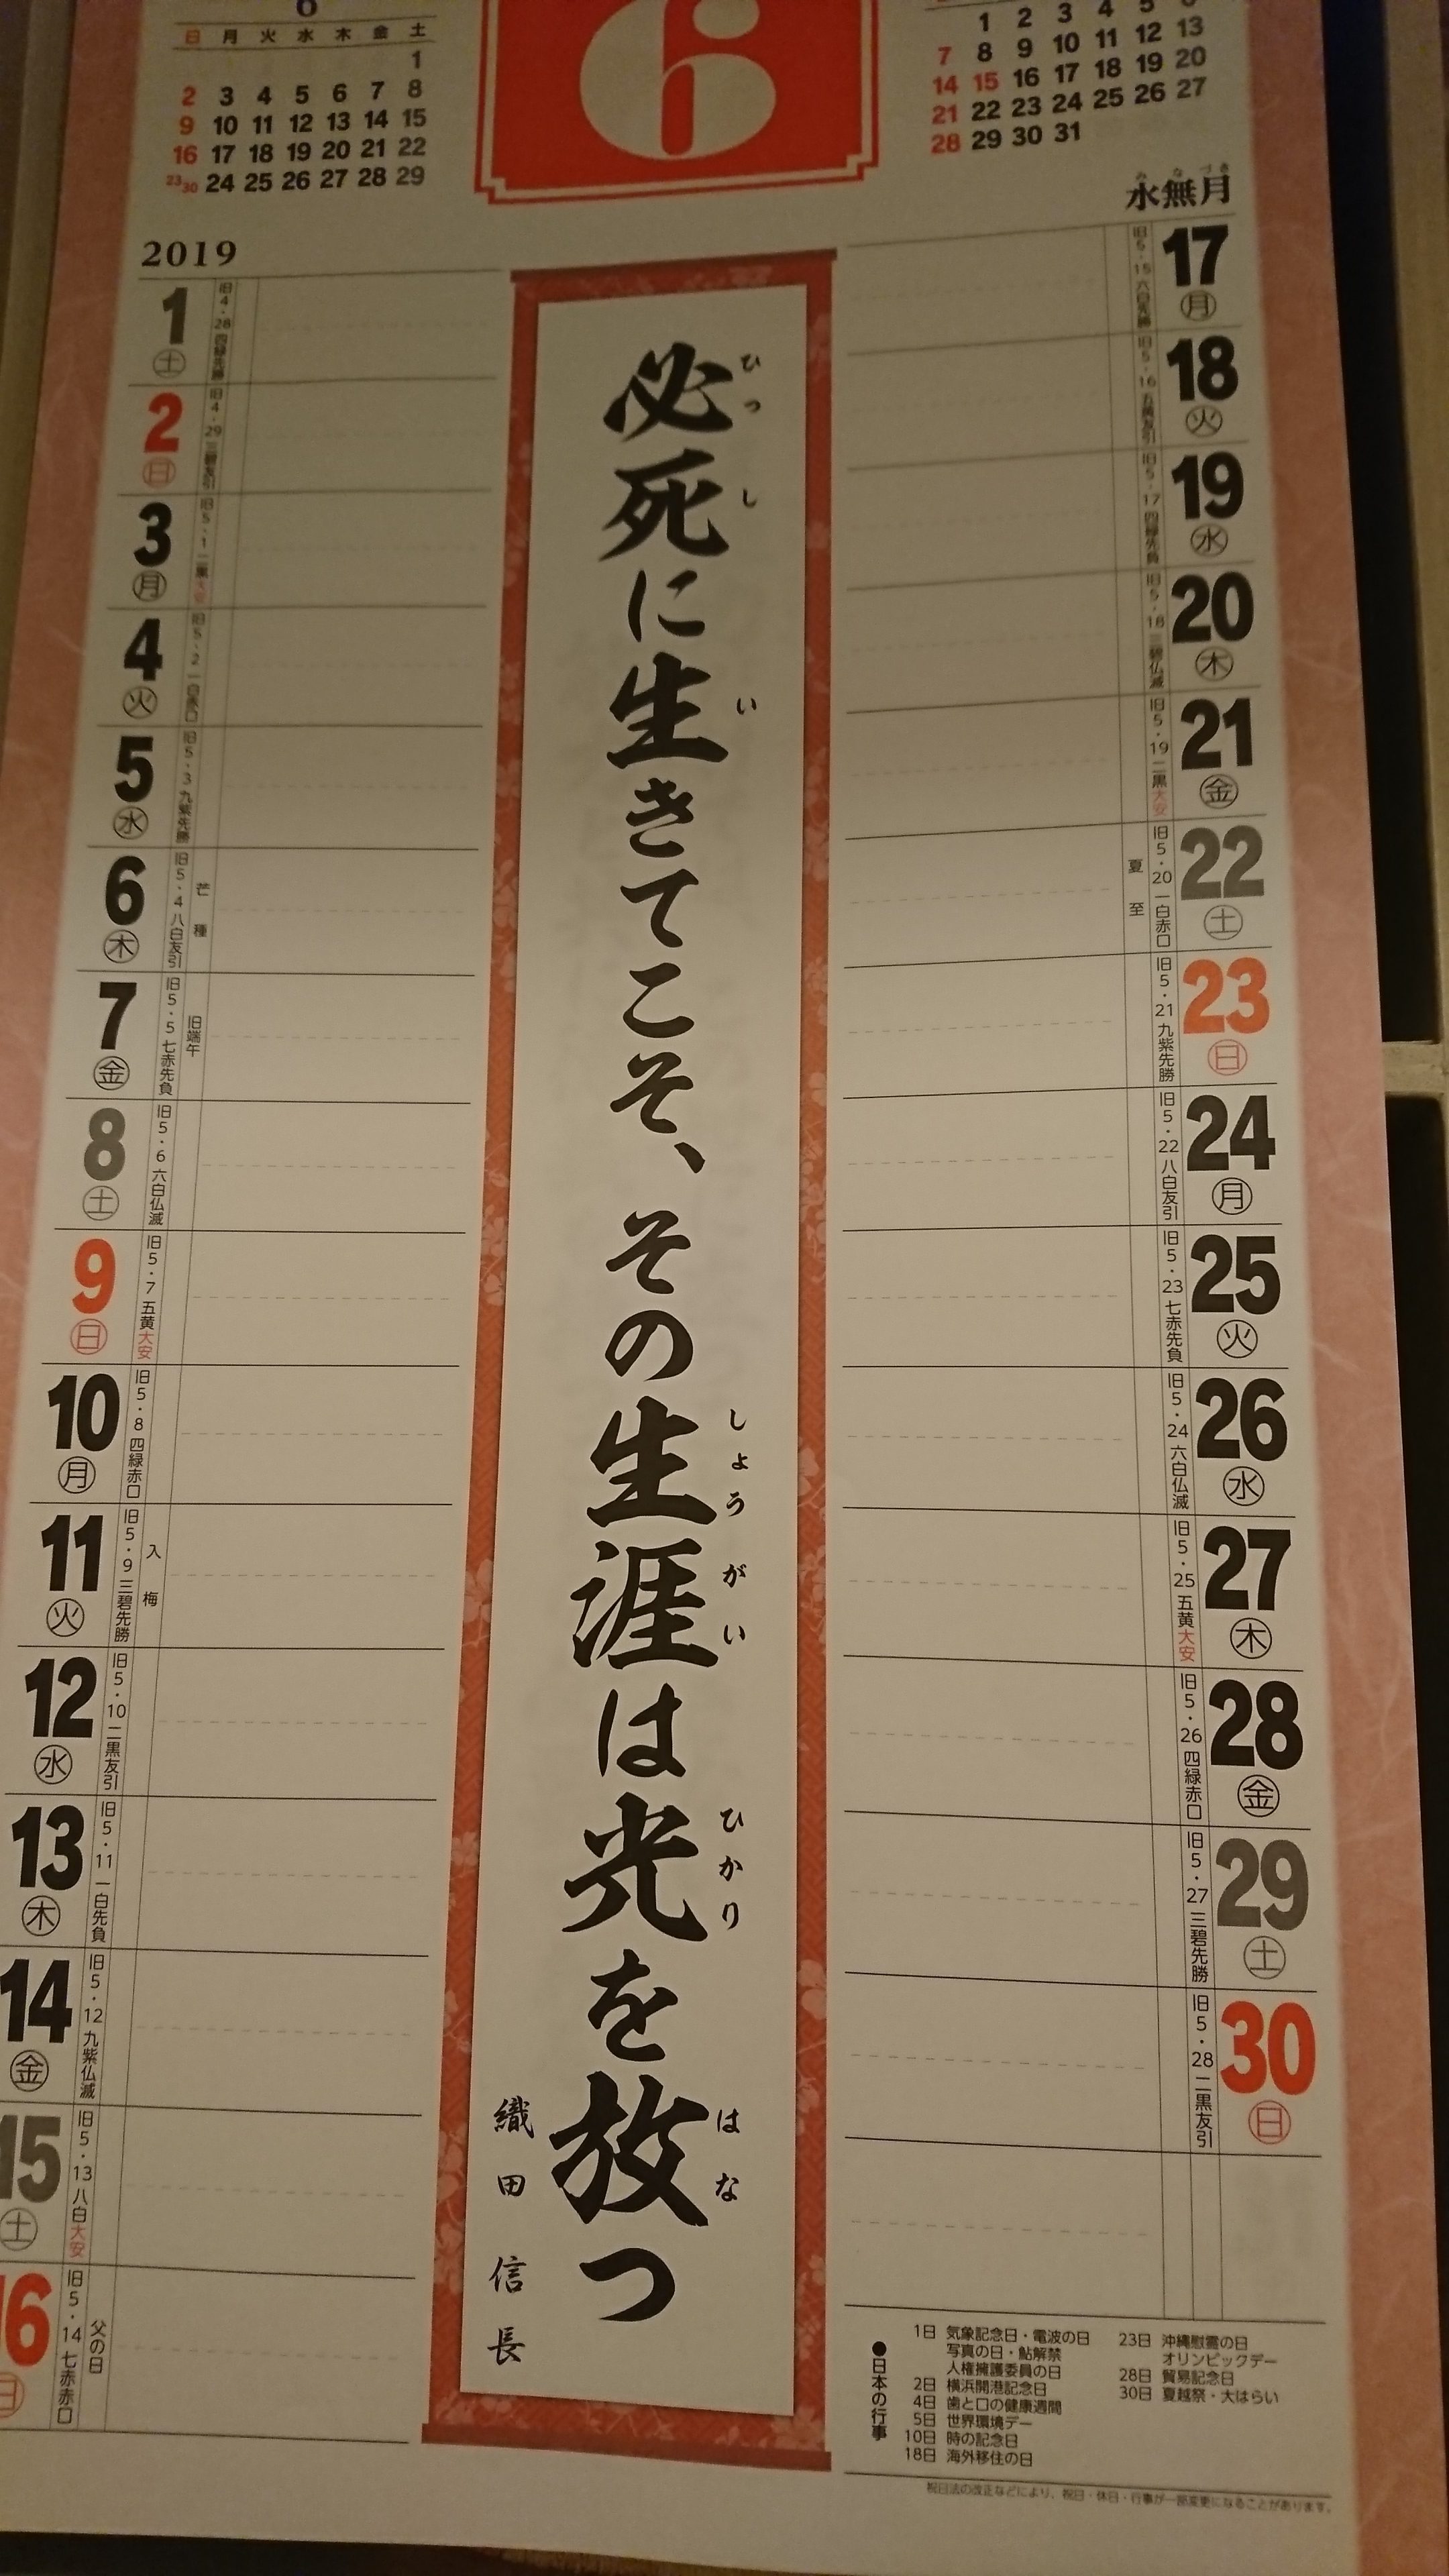 6
日 月 火 水 木 金 土
1
2 3 4 5 6 7 8
9 10 11 12 13 14 15
16 17 18 19 20 21 22
23 30 24 25 26 27 28 29
6
1 2 3 4 5 6
7 8 9 10 11 12 13
14 15 16 17 18 19 20
21 22 23 24 25 26 27
28 29 30 31
みなづき
水無月
2019
必死に生きてこそ、その生涯は光を放つ
ひっ し い しょう がい ひかり はな
織田信長
1 土 旧4・28 四緑先勝
2 日 旧4・29 三碧友引
3 月 旧5・1 二黒大安
4 火 旧5・2 一白赤口
5 水 旧5・3 九紫先勝
6 木 旧5・4 八白友引 芒種
7 金 旧5・5 七赤先負 旧端午
8 土 旧5・6 六白仏滅
9 日 旧5・7 五黄大安
10 月 旧5・8 四緑赤口
11 火 旧5・9 三碧先勝 入梅
12 水 旧5・10 二黒友引
13 木 旧5・11 一白先負
14 金 旧5・12 九紫仏滅
15 土 旧5・13 八白大安
16 日 旧5・14 七赤赤口 父の日
17 月 旧5・15 六白先勝
18 火 旧5・16 五黄友引
19 水 旧5・17 四緑先負
20 木 旧5・18 三碧仏滅
21 金 旧5・19 二黒大安
22 土 旧5・20 一白赤口 夏至
23 日 旧5・21 九紫先勝
24 月 旧5・22 八白友引
25 火 旧5・23 七赤先負
26 水 旧5・24 六白仏滅
27 木 旧5・25 五黄大安
28 金 旧5・26 四緑赤口
29 土 旧5・27 三碧先勝
30 日 旧5・28 二黒友引
●日本の行事
1日 気象記念日・電波の日
写真の日・鮎解禁
人権擁護委員の日
2日 横浜開港記念日
4日 歯と口の健康週間
5日 世界環境デー
10日 時の記念日
18日 海外移住の日
23日 沖縄慰霊の日
オリンピックデー
28日 貿易記念日
30日 夏越祭・大はらい
祝日法の改正などにより、祝日・休日・行事が一部変更になることがあります。